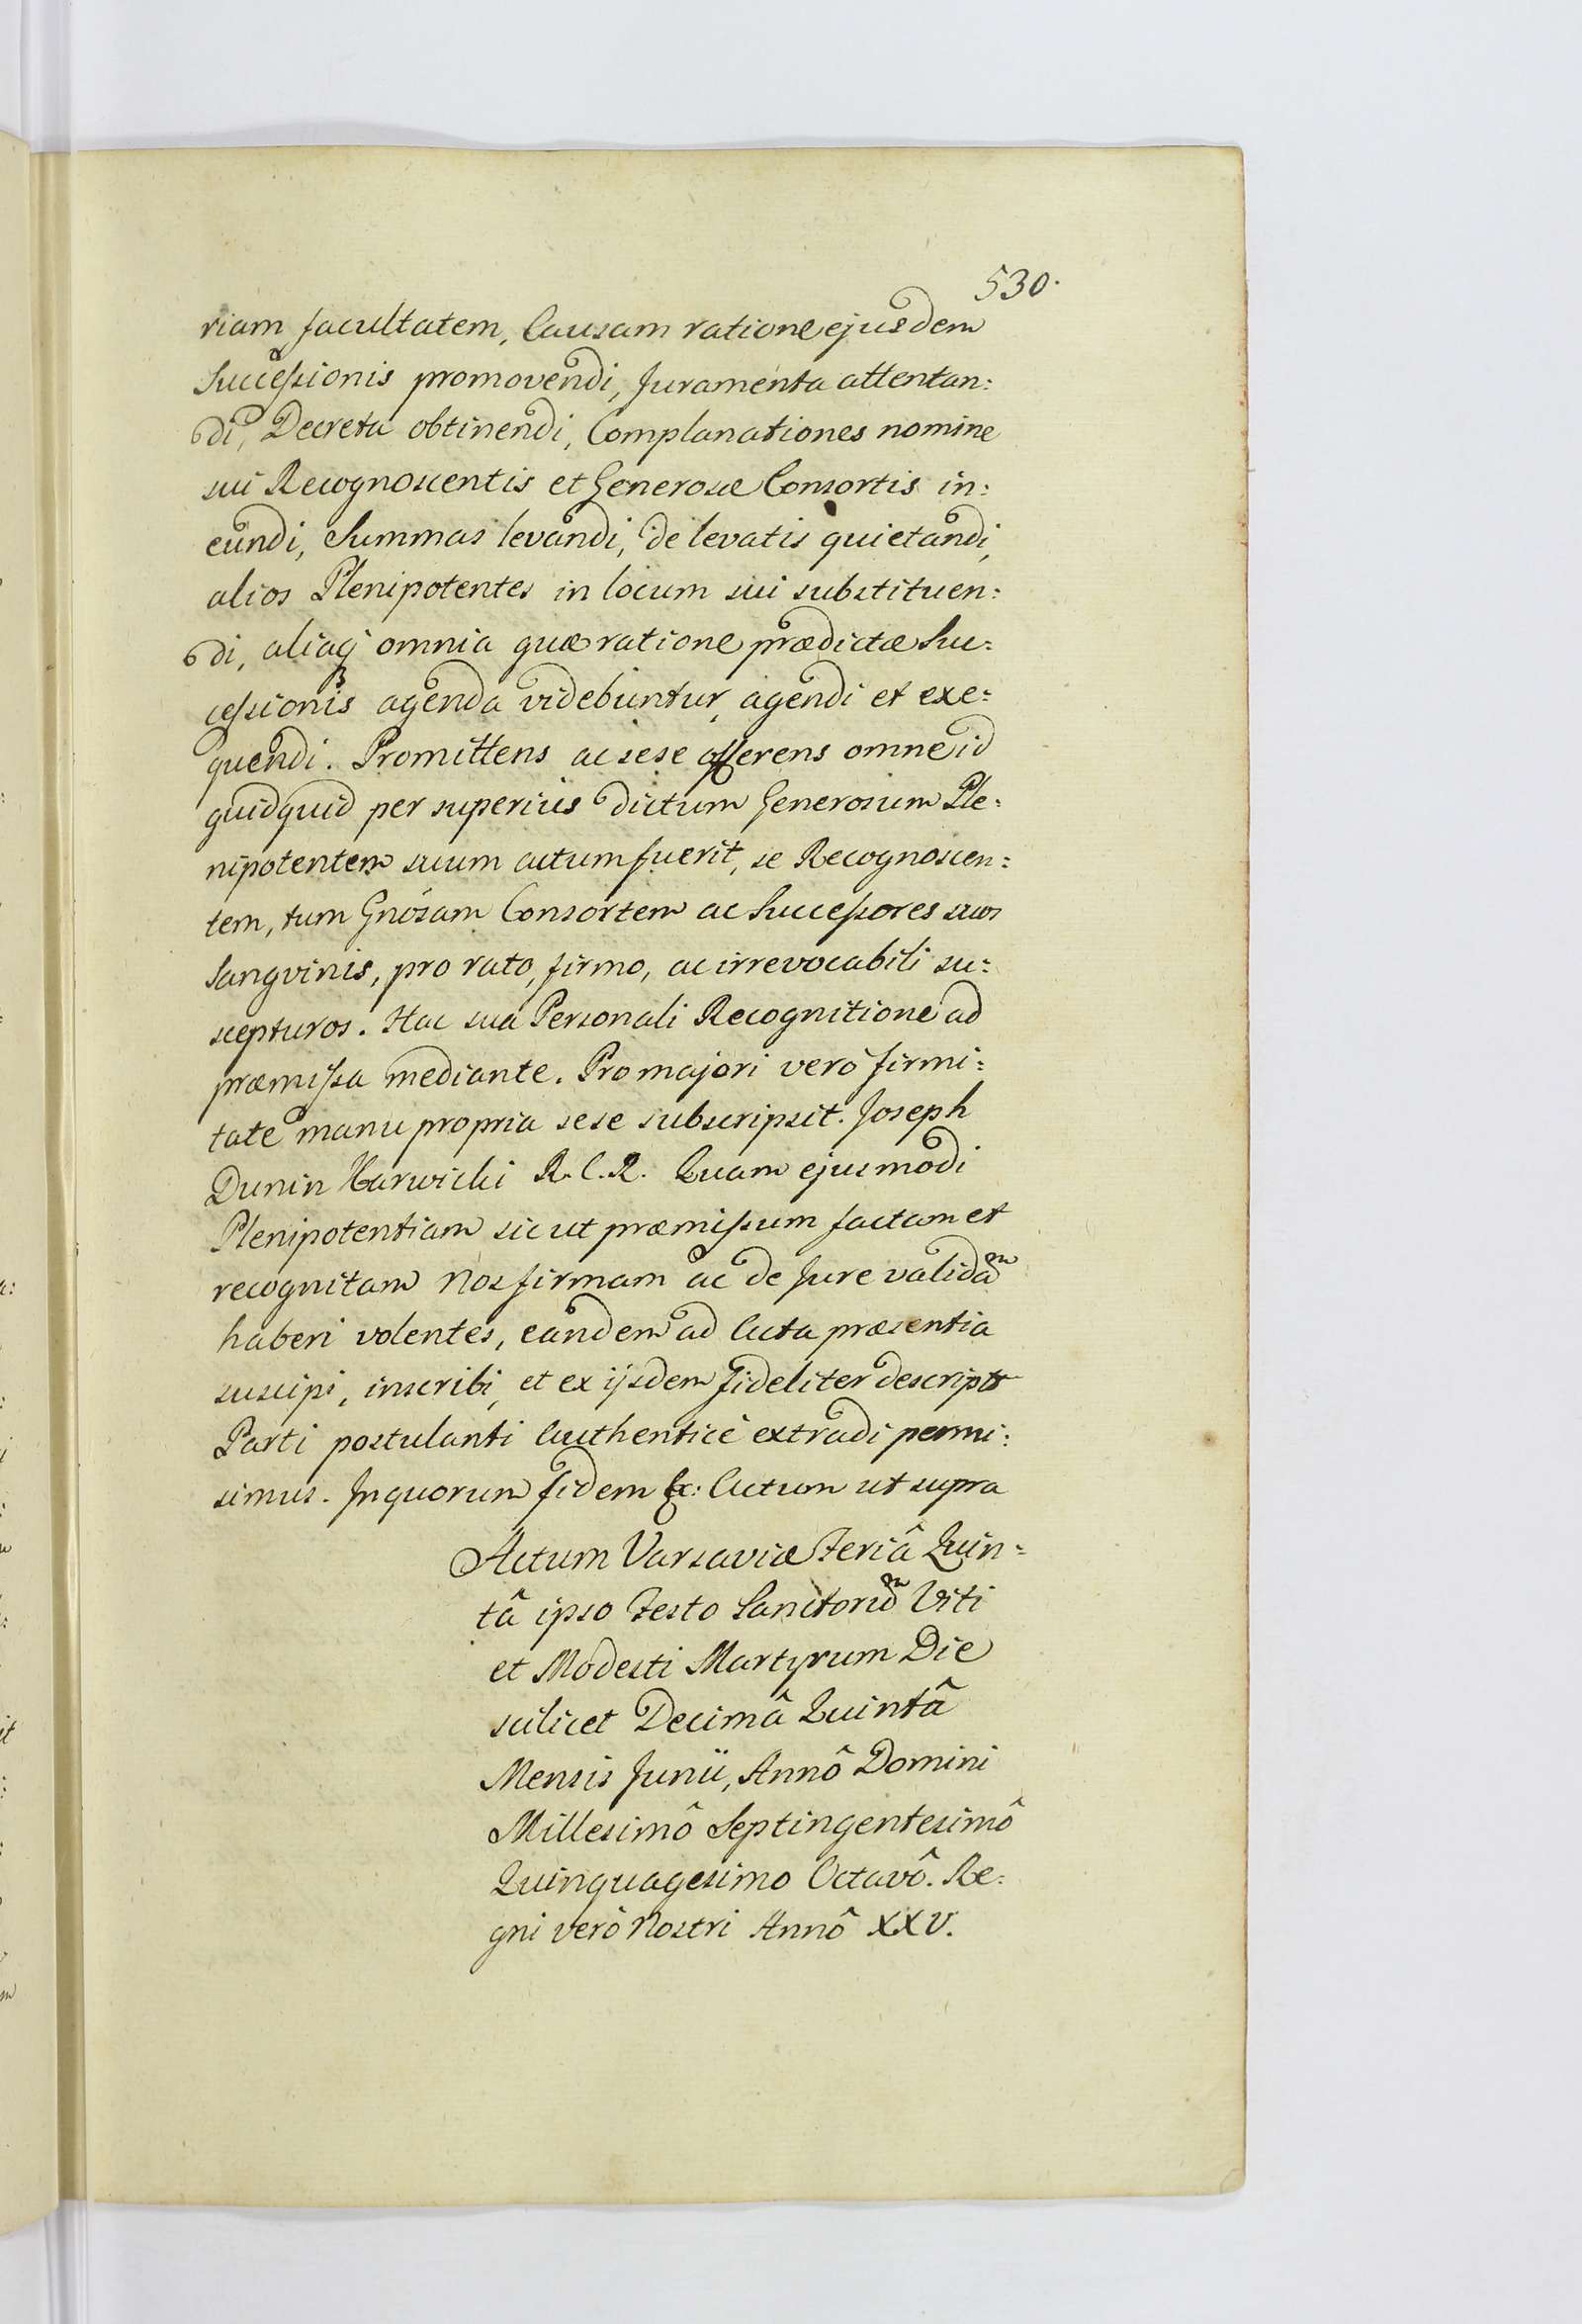 530.
riam facultatem, Causam ratione ejusdem
Successionis promovendi, Juramenta attentan:
di, Decreta obtinendi, Complanationes nomine
sui Recognoscentis et Generosæ Consortis in:
eundi, Summas levandi, de levatis quietandi,
alios Plenipotentes in locum sui substituen:
di, aliaq omnia quæ ratione prædictæ Suc:
cessionis agenda videbuntur, agendi et exe:
quendi. Promittens ac sese offerens omne id
quidquid per superius dictum Generosum Ple:
nipotentem suum actum fuerit, se Recognoscen:
tem, tum Gnosam Consortem ac Successores suos
Sangvinis, pro rato, firmo, ac irrevocabili su:
scepturos. Hac sua Personali Recognitione ad
præmissa mediante. Pro majori verò firmi:
tate manu propria sese subscripsit. Joseph
Dunin Karwicki R. C. R. Quam ejusmodi
Plenipotentiam sicut præmissum factam et
recognitam Nos firmam ac de Jure validam
haberi volentes, eandem ad Acta præsentia
suscipi, inscribi, et ex ijsdem fideliter descript
Parti postulanti Authenticè extradi permi:
simus. In quorum fidem &c: Actum ut supra
Actum Varsaviæ Feriâ Quin:
tâ ipso Festo Sanctorum Viti
et Modesti Martyrum Die
scilicet Decimâ Quintâ
Mensis Junii, Annô Domini
Millesimô Septingentesimô
Quinquagesimo Octavô. Re:
gni verò Nostri Annô XXV.